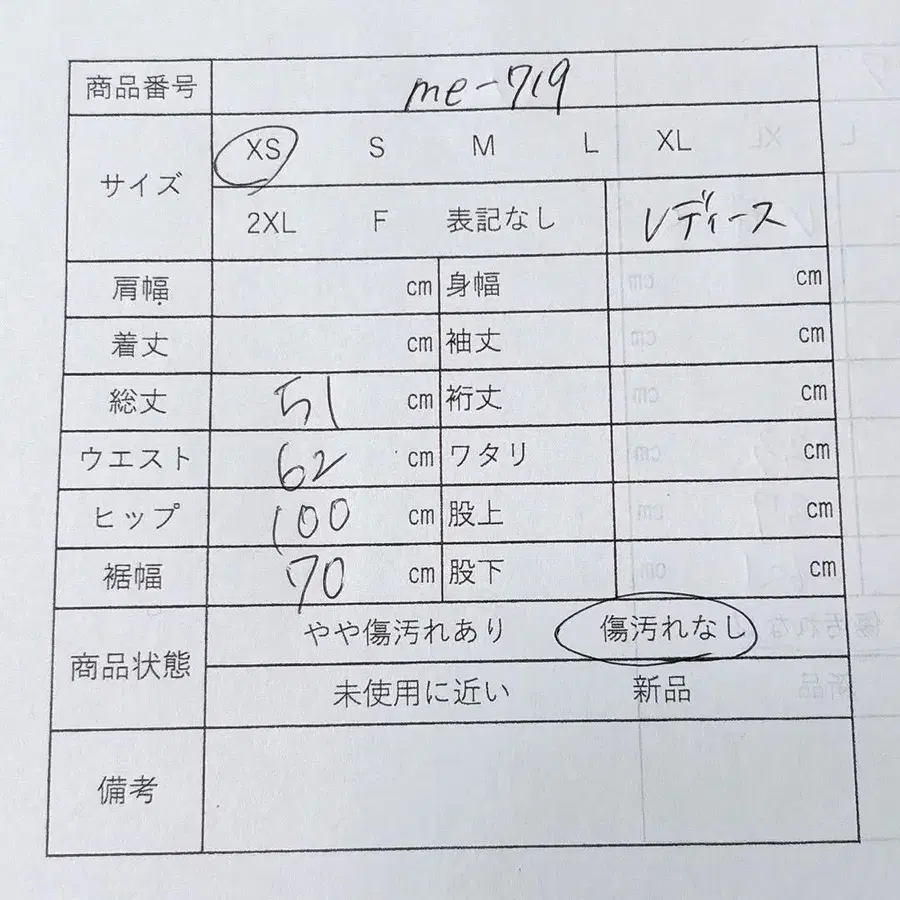 商品番号 me-719
サイズ XS S M L XL
2XL F 表記なし レディース
肩幅 cm 身幅 cm
着丈 cm 袖丈 cm
総丈 51 cm 裄丈 cm
ウエスト 62 cm ワタリ cm
ヒップ 100 cm 股上 cm
裾幅 70 cm 股下 cm
商品状態 やや傷汚れあり 傷汚れなし
未使用に近い 新品
備考